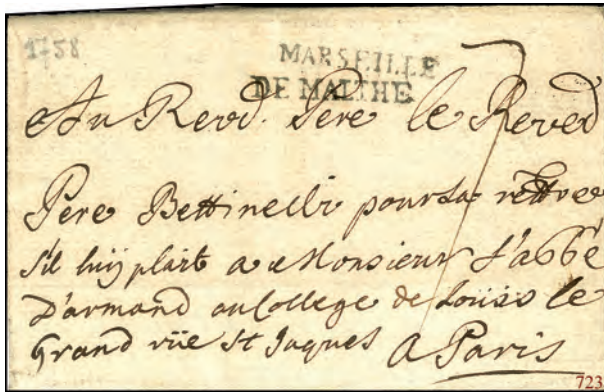 1758
MARSEILLE
DE MALTHE
Au Revd. Pere le Reved
Pere Bettinelli pour la rettre
s'il luy plait a Monsieur L'abbé
D'armand au College de Loüis le
Grand rüe St Jaques A Paris
723